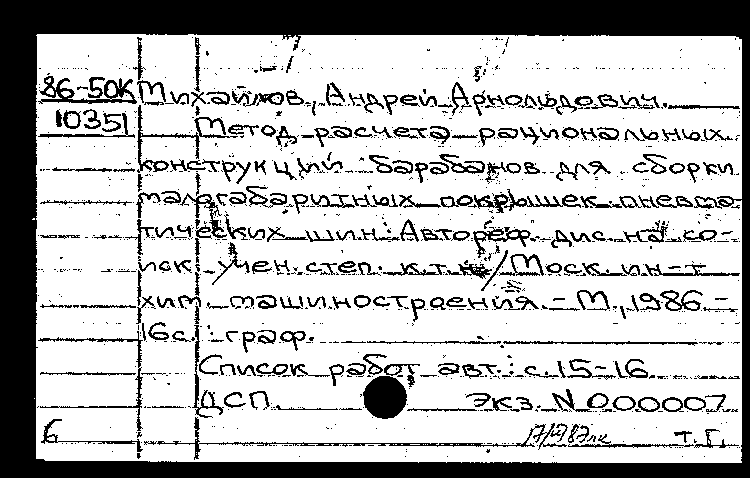 86-50К Михайлов, Андрей Арнольдович.
10351 Метод расчета рациональных
конструкций барабанов для сборки
малогабаритных покрышек пневма-
тических шин: Автореф. дис. на со-
иск. учен. степ. к.т.н. / Моск. ин-т
хим. машиностроения. - М., 1986. -
16с.: граф.
Список работ авт.: с. 15-16
ДСП. Экз. N 000007
б т.г.